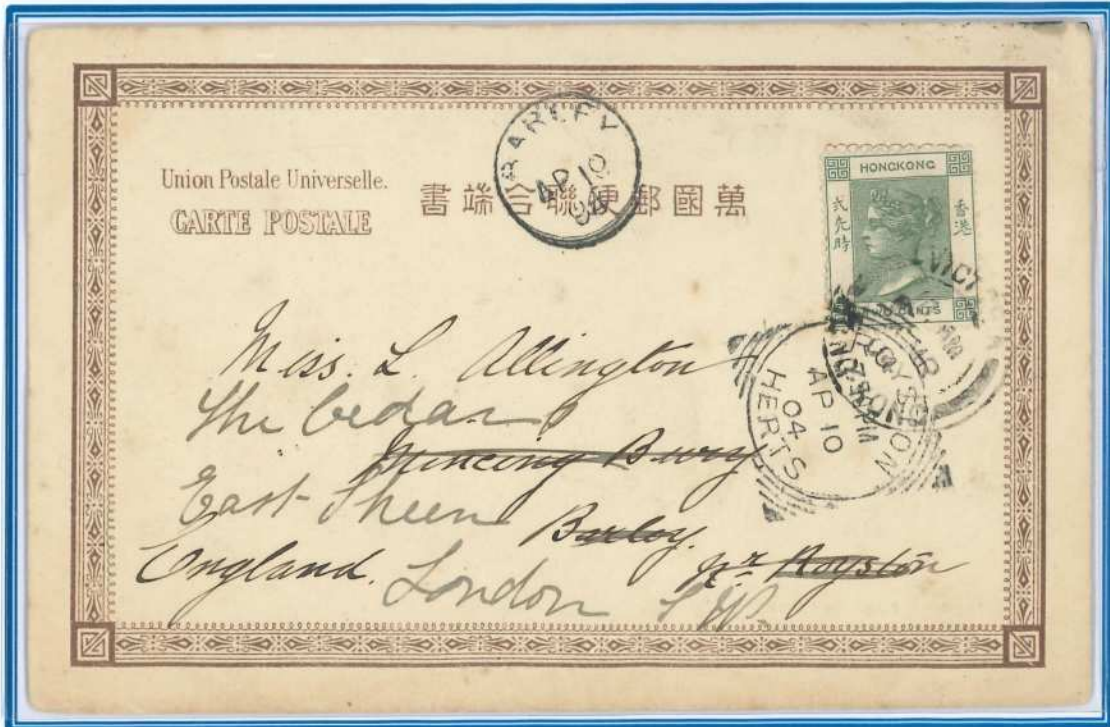 Union Postale Universelle.
CARTE POSTALE
書端合聯便郵國萬
BARLEY
AP 10
04
HONGKONG
香港
弍先時
TWO CENTS
VICT
HONG KONG
ROYSTON
7.30 PM
AP 10
04
HERTS
Miss. L. Allington
The Cedars
Mincing Bury
East Sheen
Barley.
nr Royston
England.
London S.W.